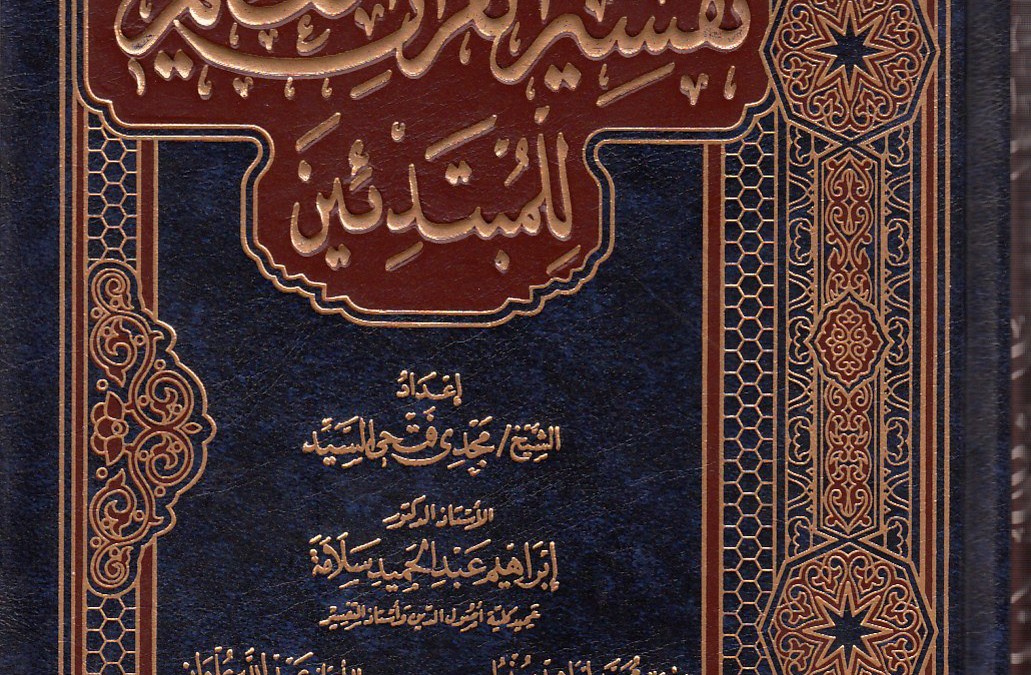 تفسير القرآن العظيم
لِلْمُبْتَدِئِينَ
إعْدَادُ
الشَّيْخ / مَجْدِي فَتْحِي السَيِّد
الأسْتَاذ الدكتور
إبْرَاهِيم عَبْد الحَمِيد سَلَامَة
عميد كلية أصُول الدِّين وأستاذ التفسير